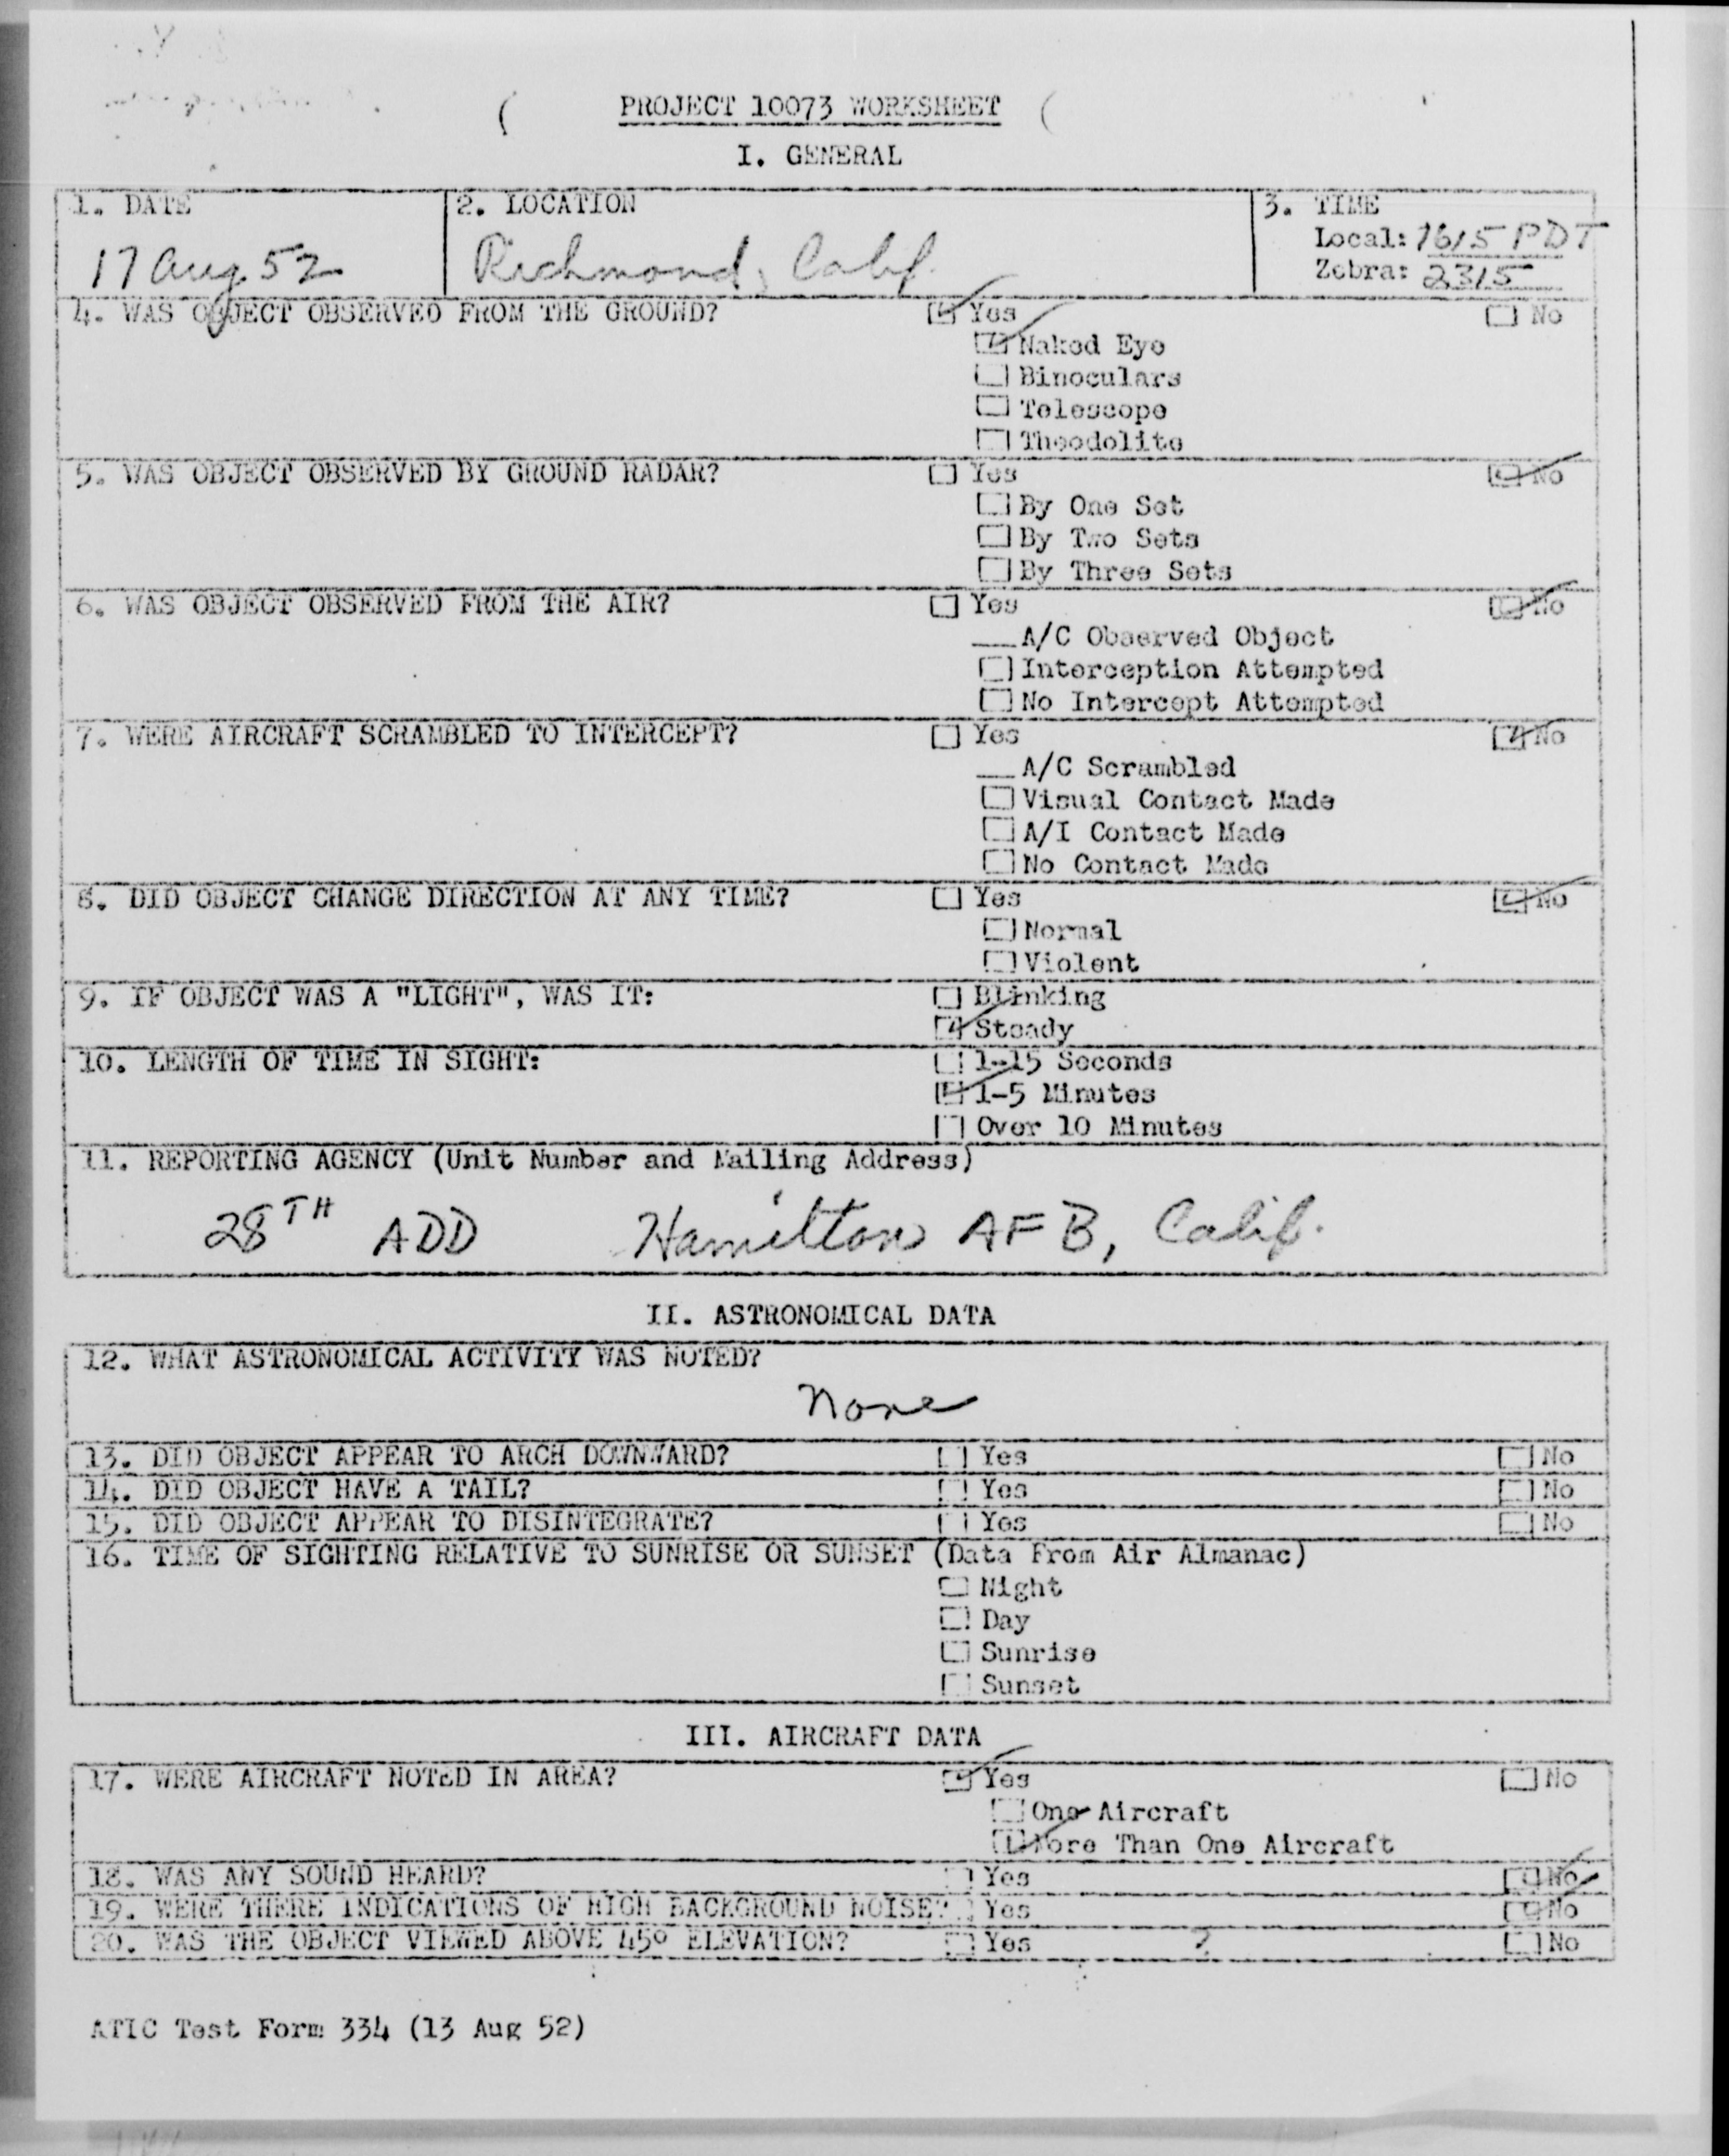 PROJECT 10073 WORKSHEET
I. GENERAL
1. DATE
17 Aug 52
2. LOCATION
Richmond, Calif.
3. TIME
Local: 1615 PDT
Zebra: 2315
4. WAS OBJECT OBSERVED FROM THE GROUND? Yes No
Naked Eye
Binoculars
Telescope
Theodolite
5. WAS OBJECT OBSERVED BY GROUND RADAR? Yes No
By One Set
By Two Sets
By Three Sets
6. WAS OBJECT OBSERVED FROM THE AIR? Yes No
A/C Observed Object
Interception Attempted
No Intercept Attempted
7. WERE AIRCRAFT SCRAMBLED TO INTERCEPT? Yes No
A/C Scrambled
Visual Contact Made
A/I Contact Made
No Contact Made
8. DID OBJECT CHANGE DIRECTION AT ANY TIME? Yes No
Normal
Violent
9. IF OBJECT WAS A "LIGHT", WAS IT: Blinking
Steady
10. LENGTH OF TIME IN SIGHT: 1-15 Seconds
1-5 Minutes
Over 10 Minutes
11. REPORTING AGENCY (Unit Number and Mailing Address)
28TH ADD Hamilton AFB, Calif.
II. ASTRONOMICAL DATA
12. WHAT ASTRONOMICAL ACTIVITY WAS NOTED?
None
13. DID OBJECT APPEAR TO ARCH DOWNWARD? Yes No
14. DID OBJECT HAVE A TAIL? Yes No
15. DID OBJECT APPEAR TO DISINTEGRATE? Yes No
16. TIME OF SIGHTING RELATIVE TO SUNRISE OR SUNSET (Data From Air Almanac)
Night
Day
Sunrise
Sunset
III. AIRCRAFT DATA
17. WERE AIRCRAFT NOTED IN AREA? Yes No
One Aircraft
More Than One Aircraft
18. WAS ANY SOUND HEARD? Yes No
19. WERE THERE INDICATIONS OF HIGH BACKGROUND NOISE? Yes No
20. WAS THE OBJECT VIEWED ABOVE 45° ELEVATION? Yes ? No
ATIC Test Form 334 (13 Aug 52)